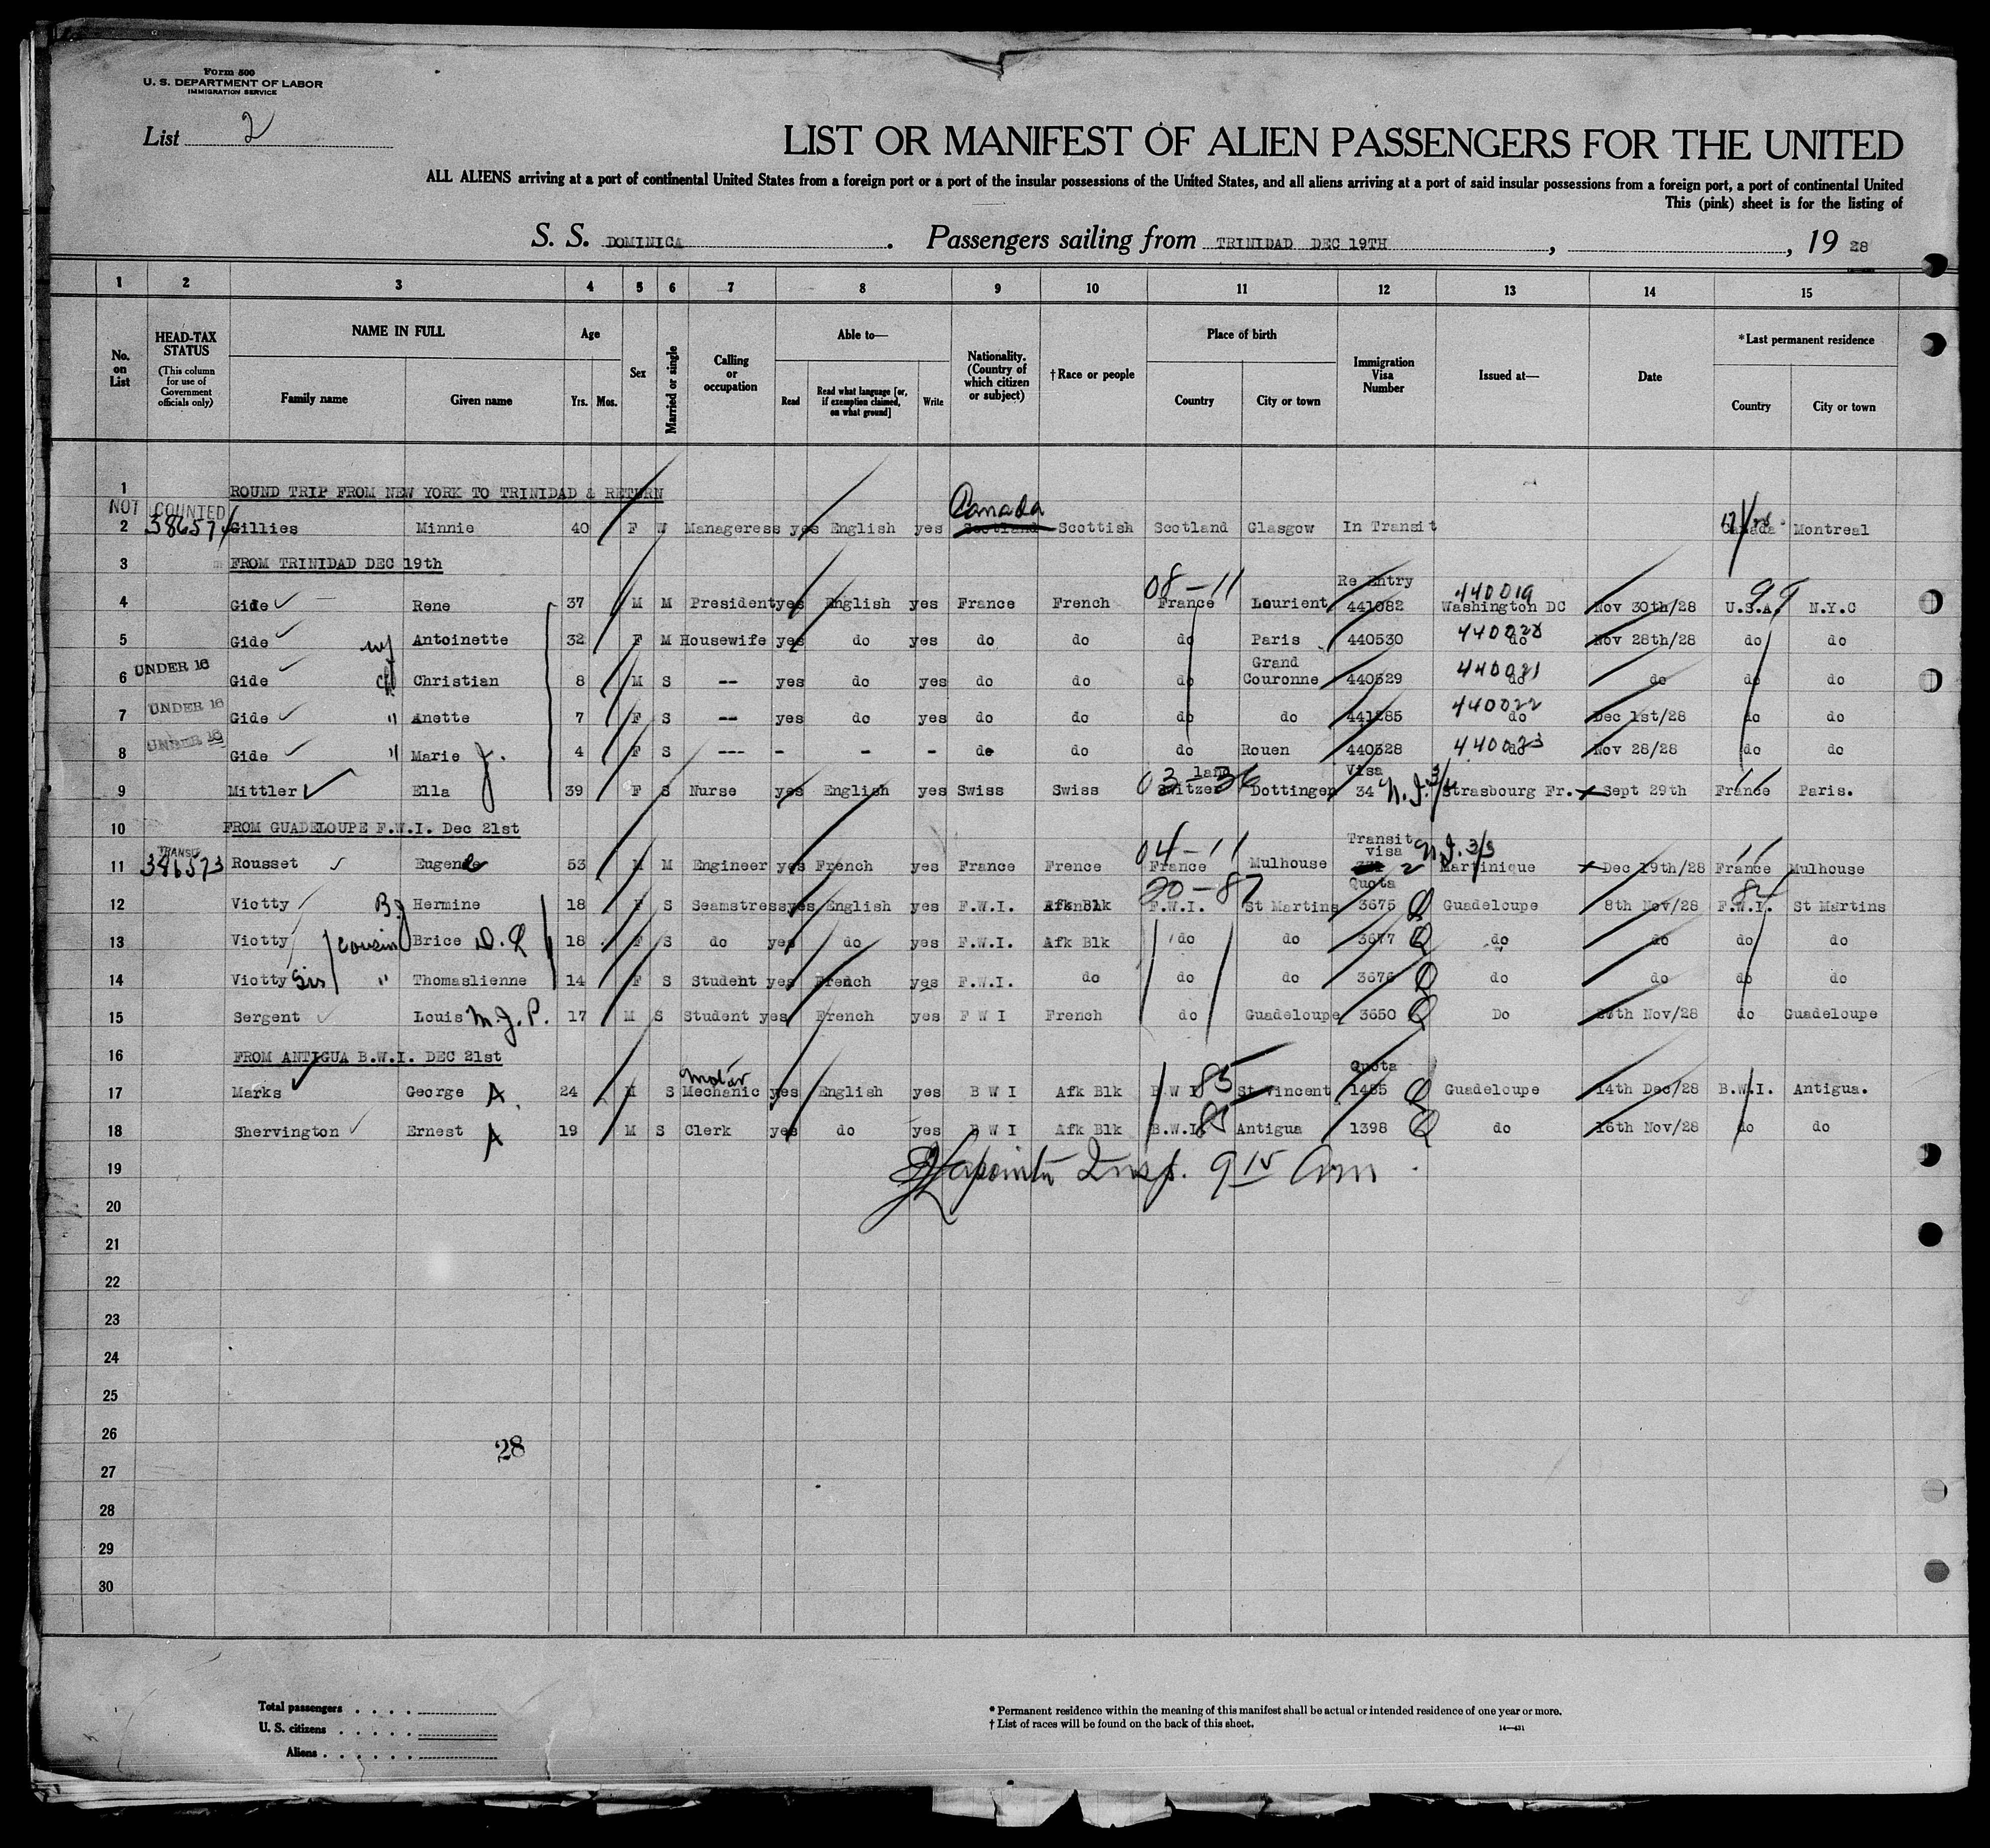 Form 500
U. S. DEPARTMENT OF LABOR
IMMIGRATION SERVICE
List 2
LIST OR MANIFEST OF ALIEN PASSENGERS FOR THE UNITED
ALL ALIENS arriving at a port of continental United States from a foreign port or a port of the insular possessions of the United States, and all aliens arriving at a port of said insular possessions from a foreign port, a port of continental United
This (pink) sheet is for the listing of
S. S. DOMINICA. Passengers sailing from TRINIDAD DEC 19TH, , 19 28
1 2 3 4 5 6 7 8 9 10 11 12 13 14 15
No. on List
HEAD-TAX STATUS
(This column for use of Government officials only)
NAME IN FULL
Family name Given name
Age
Yrs. Mos.
Sex
Married or single
Calling or occupation
Able to—
Read Read what language [or, if exemption claimed, on what ground] Write
Nationality. (Country of which citizen or subject)
†Race or people
Place of birth
Country City or town
Immigration Visa Number
Issued at—
Date
*Last permanent residence
Country City or town
1 ROUND TRIP FROM NEW YORK TO TRINIDAD & RETURN
NOT COUNTED Canada
2 386574 Gillies Minnie 40 F W Manageress yes English yes Scotland Scottish Scotland Glasgow In Transit Canada Montreal
3 FROM TRINIDAD DEC 19th
08-11 Re Entry 440019 99
4 Gide Rene 37 M M President yes English yes France French France Lourient 441082 Washington DC Nov 30th/28 U.S.A. N.Y.C
5 Gide w/ Antoinette 32 F M Housewife yes do yes do do do Paris 440530 do Nov 28th/28 do do
UNDER 16 Grand 440021
6 Gide ch Christian 8 M S -- yes do yes do do do Couronne 440529 do do do do
UNDER 16 440022
7 Gide " Anette 7 F S -- yes do yes do do do do 441285 do Dec 1st/28 do do
UNDER 16 440023
8 Gide " Marie J. 4 F S --- - - - do do do Rouen 440528 do Nov 28/28 do do
03-36 land Visa
9 Mittler Ella 39 F S Nurse yes English yes Swiss Swiss Switzer Dottingen 34 Strasbourg Fr. Sept 29th France Paris.
10 FROM GUADELOUPE F.W.I. Dec 21st
TRANSIT 04-11 Transit visa
11 386573 Rousset Eugene 53 M M Engineer yes French yes France Frence France Mulhouse 2 Martinique Dec 19th/28 France Mulhouse
20-87 Quota
12 Viotty Hermine 18 F S Seamstress yes English yes F.W.I. Afk Blk F.W.I. St Martins 3675 Q Guadeloupe 8th Nov/28 F.W.I. St Martins
13 Viotty cousin Brice 18 F S do yes do yes F.W.I. Afk Blk do do 3677 Q do do do do
14 Viotty Sis " Thomaslienne 14 F S Student yes French yes F.W.I. do do do 3676 Q do do do do
15 Sergent Louis M.J.P. 17 M S Student yes French yes F W I French do Guadeloupe 3650 Q Do Nov/28 do Guadeloupe
16 FROM ANTIGUA B.W.I. DEC 21st
Motor 85 Quota
17 Marks George A. 24 M S Mechanic yes English yes B W I Afk Blk B W I St Vincent 1485 Q Guadeloupe 14th Dec/28 B.W.I. Antigua.
85
18 Shervington Ernest A 19 M S Clerk yes do yes B W I Afk Blk B.W.I. Antigua 1398 Q do 16th Nov/28 do do
19 Insp. 9
20
21
22
23
24
25
26
28
27
28
29
30
Total passengers
U. S. citizens
Aliens
* Permanent residence within the meaning of this manifest shall be actual or intended residence of one year or more.
† List of races will be found on the back of this sheet.
14—431